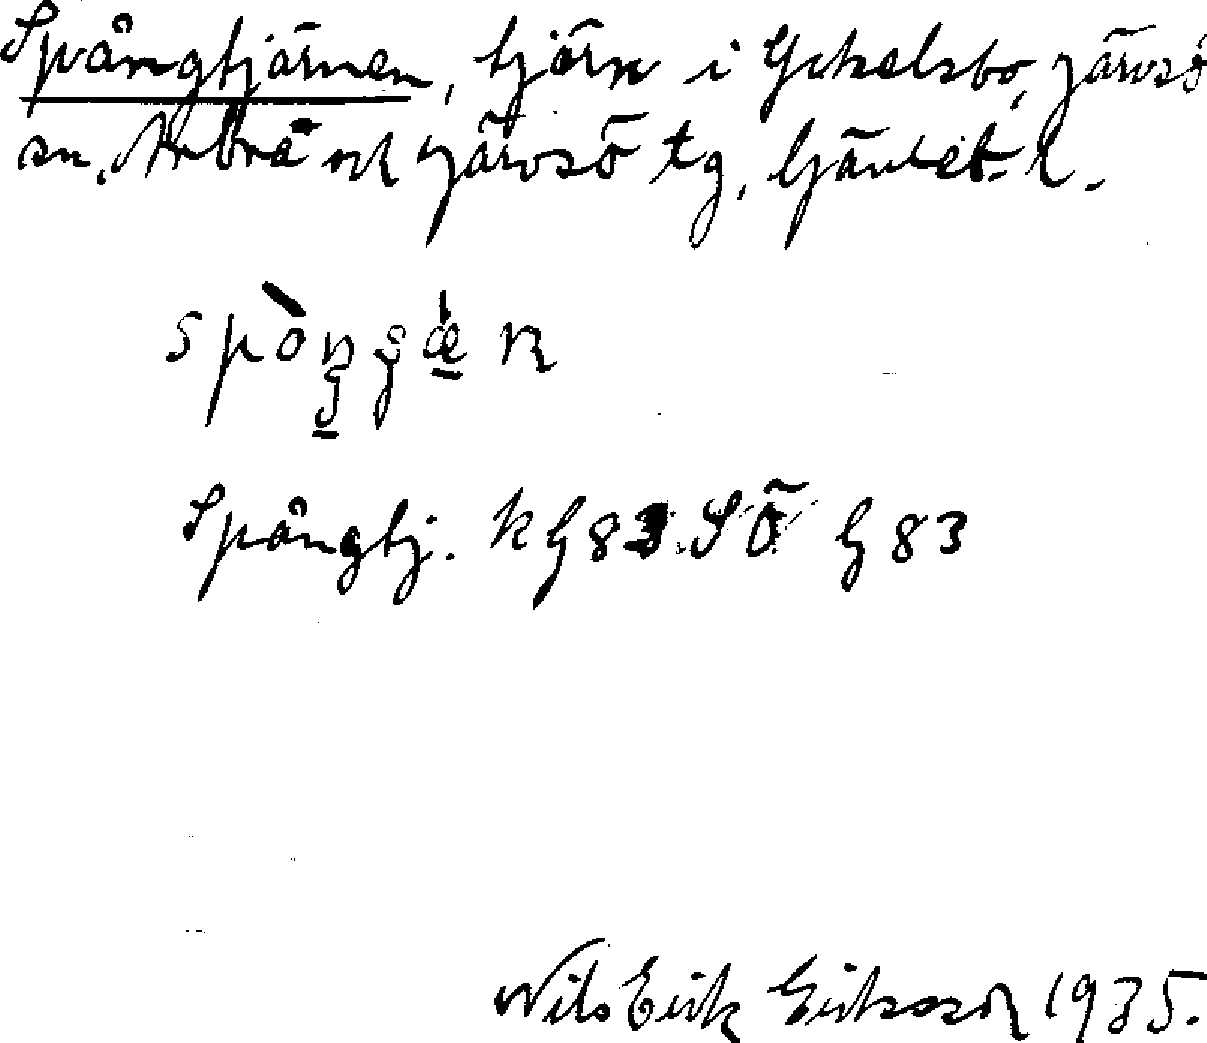 Spångtjärnen, tjärn i Yckelsbo, Järvsö
sn, Arbrå och Järvsö tg, Gävleb. l.
Spångtj. k G 83 SÖ G 83
Nils Erik Eriksson 1935.